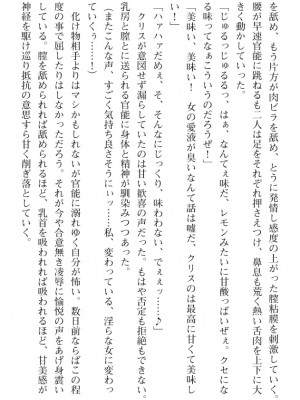 を舐め、もう片方が肉ビラを舐め、とうに発情し感度の上がった膣粘膜を刺激していく。
腰が早速官能に跳ねるも二人は足をそれぞれ押さえつけ、鼻息も荒く熱い舌肉を上下に大
きく動かしていった。
「じゅるっじゅるるっ、はぁ、なんてぇ味だ、レモンみたいに甘酸っぱいぜぇ。クセにな
る味ってなぁこういうのだろうぜ！」
「美味い、美味い！　女の愛液が臭いなんて話は嘘だ、クリスのは最高に甘くて美味し
い！」
「ハァハァだめぇ、そ、そんなにじっくり、味わわない、でぇぇぇ……♪」
クリスが意図せず漏らしていったのは甘い歓喜の声だった。もはや否定も拒絶もできない。
乳房と膣とに送られる官能に身体と精神が馴染みつつあった。
（またこんな声、すごく気持ち良さそうにいっ……私、変わっている、淫らな女に変わっ
ていくぅ……！）
化け物相手よりはマシかもしれないが官能に溺れゆく自分が怖い。数日前ならばこの程
度の事で屈したりはしなかっただろう。それが今や合意無き凌辱に愉悦の声をあげ身震い
していく。膣を舐められれば舐められるほど、乳首を吸われれば吸われるほど、甘美感が
神経を駆け巡り抵抗の意思すら甘く削ぎ落としていく。